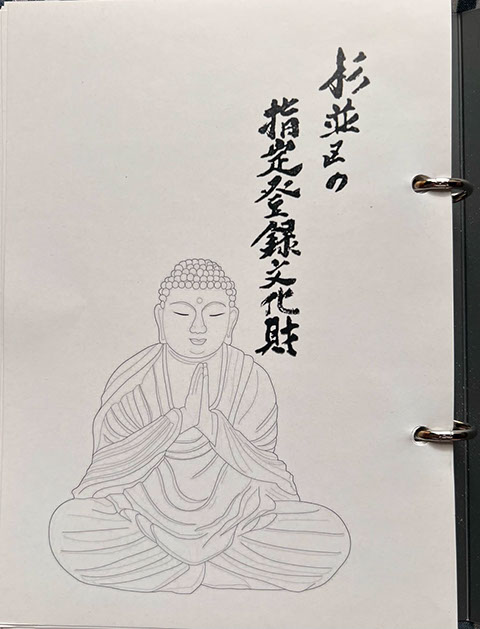 杉並区の
指定登録文化財